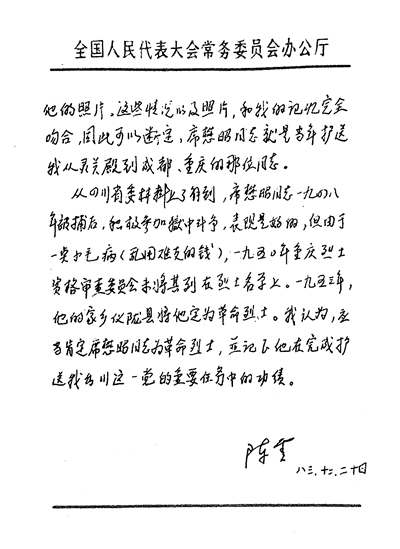 全国人民代表大会常务委员会办公厅
他的照片。这些情况以及照片,和我的记忆完全
吻合,因此可以断定,席懋昭同志就是当年护送
我从灵关殿到成都、重庆的那位同志。
从四川省委材料上了解到,席懋昭同志一九四八
年被捕后,积极参加狱中斗争,表现是好的,但由于
一点小毛病(乱用难友的钱),一九五〇年重庆烈士
资格审查委员会未将其列在烈士名单上。一九五三年,
他的家乡仪陇县将他定为革命烈士。我认为,应
当肯定席懋昭同志为革命烈士,并记下他在完成护
送我出川这一党的重要任务中的功绩。
陈云
八三.十二.二十日